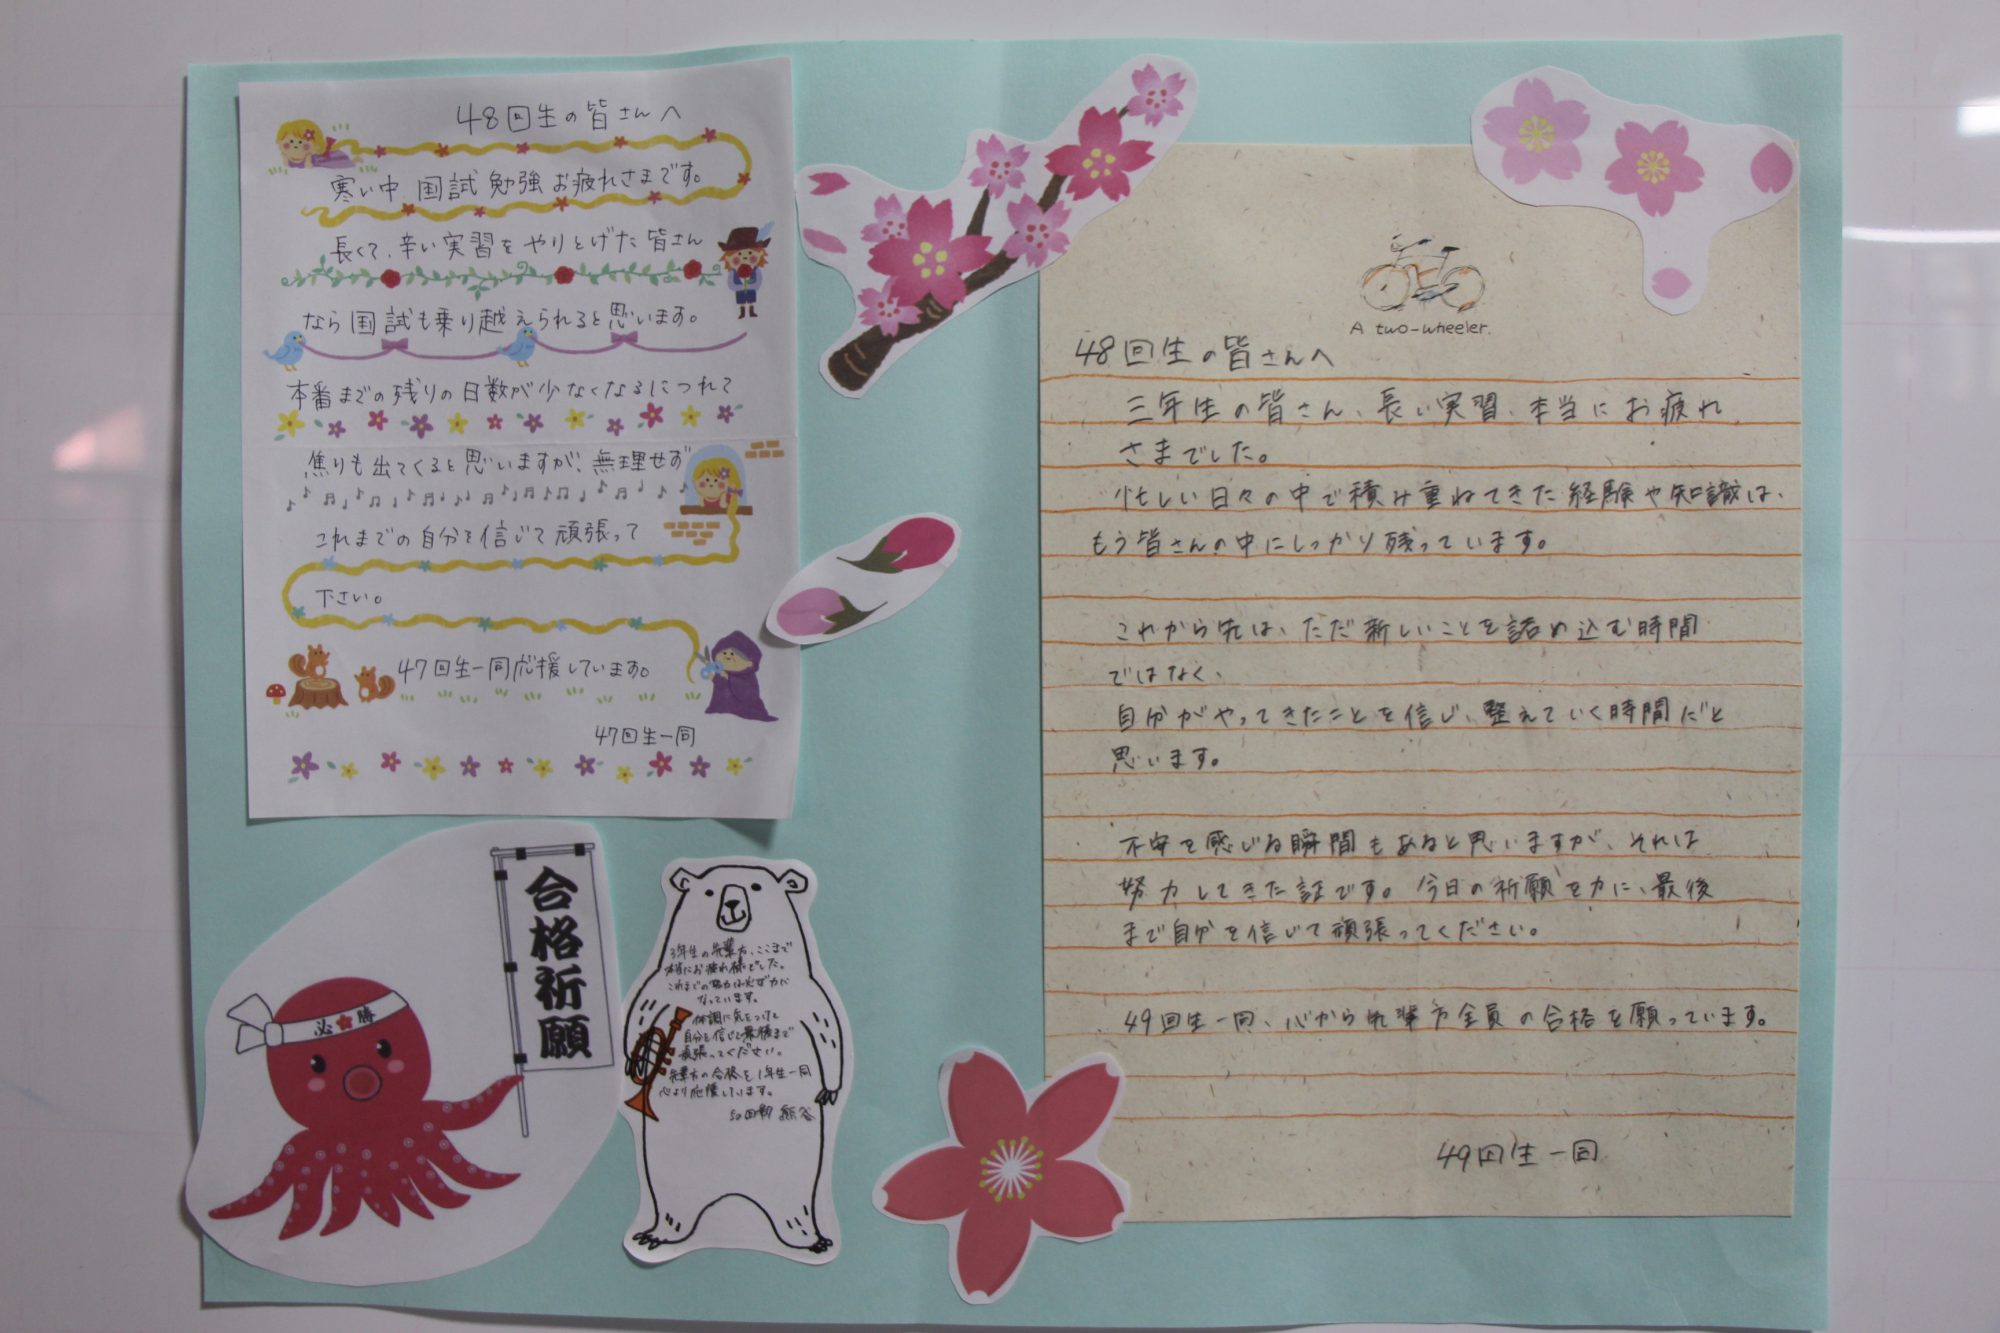 48回生の皆さんへ
寒い中、国試勉強お疲れさまです。
長くて、辛い実習をやりとげた皆さん
なら国試も乗り越えられると思います。
本番までの残りの日数が少なくなるにつれて
焦りも出てくると思いますが、無理せず
これまでの自分を信じて頑張って
下さい。
47回生一同応援しています。
47回生一同
合格祈願
必勝
3年生の先輩方、ここまで
本当にお疲れ様でした。
これまでの努力は必ず力に
なっています。
体調に気をつけて
自分を信じて最後まで
頑張ってください。
先輩方の合格を1年生一同
心より応援しています。
A two-wheeler.
48回生の皆さんへ
三年生の皆さん、長い実習、本当にお疲れ
さまでした。
忙しい日々の中で積み重ねてきた経験や知識は、
もう皆さんの中にしっかり残っています。
これから先は、ただ新しいことを詰め込む時間
ではなく、
自分がやってきたことを信じ、整えていく時間だと
思います。
不安を感じる瞬間もあると思いますが、それは
努力してきた証です。今日の祈願を力に、最後
まで自分を信じて頑張ってください。
49回生一同、心から先輩方全員の合格を願っています。
49回生一同